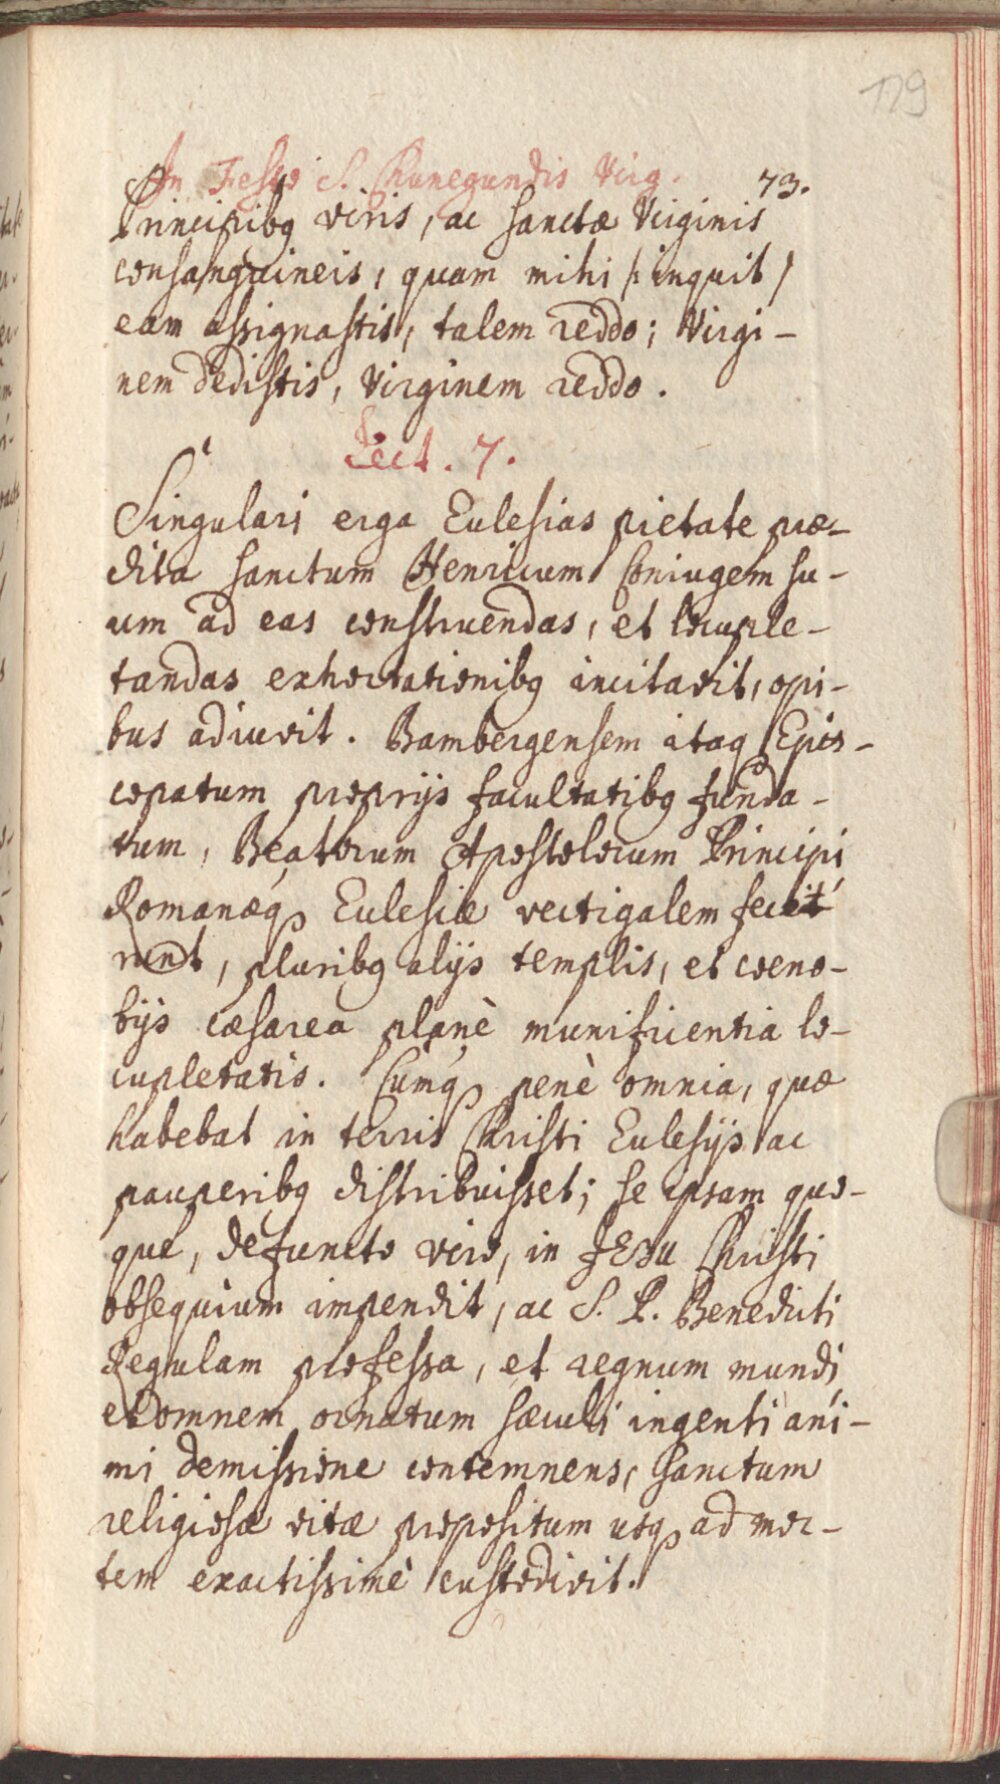 129
In Festo S. Chunegundis Virg. 73.
Principibq viris, ac sanctæ Virginis
consanguineis, quam mihi /: inquit /
eam assignastis, talem reddo; Virgi-
nem dedistis, Virginem reddo.
Lect. 7.
Singulari erga Eclesias pietate præ-
dita sanctum Henricum Coniugem su-
um ad eas construendas, et locuple-
tandas exhortationibq incitavit, opi-
bus adiuvit. Bambergensem itaq Epis-
copatum proprijs facultatibq funda-
tum, Beatorum Apostolorum Principi
Romanæq Eclesiæ vectigalem fecit
runt, pluribq alijs templis, et cœno-
bijs cæsarea planè munificentia lo-
cupletatis. Cumq penè omnia, quæ
habebat in terris Christi Eclesijs ac
pauperibq distribuisset; se ipsam quo-
que, defuncto viro, in JEsu Christi
obsequium impendit, ac S. P. Benedicti
Regulam professa, et regnum mundi
et omnem ornatum sæculi ingenti ani-
mi demissione contemnens, sanctum
religiosæ vitæ propositum usq ad mor-
tem exactissimè custodivit.